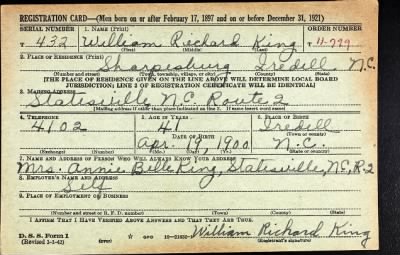 REGISTRATION CARD—(Men born on or after February 17, 1897 and on or before December 31, 1921)
SERIAL NUMBER 1. NAME (Print) ORDER NUMBER
T 432 William Richard King T 11-799
(First) (Middle) (Last)
2. PLACE OF RESIDENCE (Print)
Sharpesburg Iredell N.C.
(Number and street) (Town, township, village, or city) (County) (State)
[THE PLACE OF RESIDENCE GIVEN ON THE LINE ABOVE WILL DETERMINE LOCAL BOARD
JURISDICTION; LINE 2 OF REGISTRATION CERTIFICATE WILL BE IDENTICAL]
3. MAILING ADDRESS
Statesville N.C. Route 2
[Mailing address if other than place indicated on line 2. If same insert word same]
4. TELEPHONE 5. AGE IN YEARS 6. PLACE OF BIRTH
4102 41 Iredell
DATE OF BIRTH (Town or county)
Apr. 19, 1900 N.C.
(Mo.) (Day) (Yr.) (State or country)
7. NAME AND ADDRESS OF PERSON WHO WILL ALWAYS KNOW YOUR ADDRESS
Mrs. Annie Belle King, Statesville, N.C, R-2
8. EMPLOYER'S NAME AND ADDRESS
Self
9. PLACE OF EMPLOYMENT OR BUSINESS
(Number and street or R. F. D. number) (Town) (County) (State)
I AFFIRM THAT I HAVE VERIFIED ABOVE ANSWERS AND THAT THEY ARE TRUE.
D. S. S. Form 1 William Richard King
(Revised 1-1-42) GPO 16-21630 (Registrant's signature)